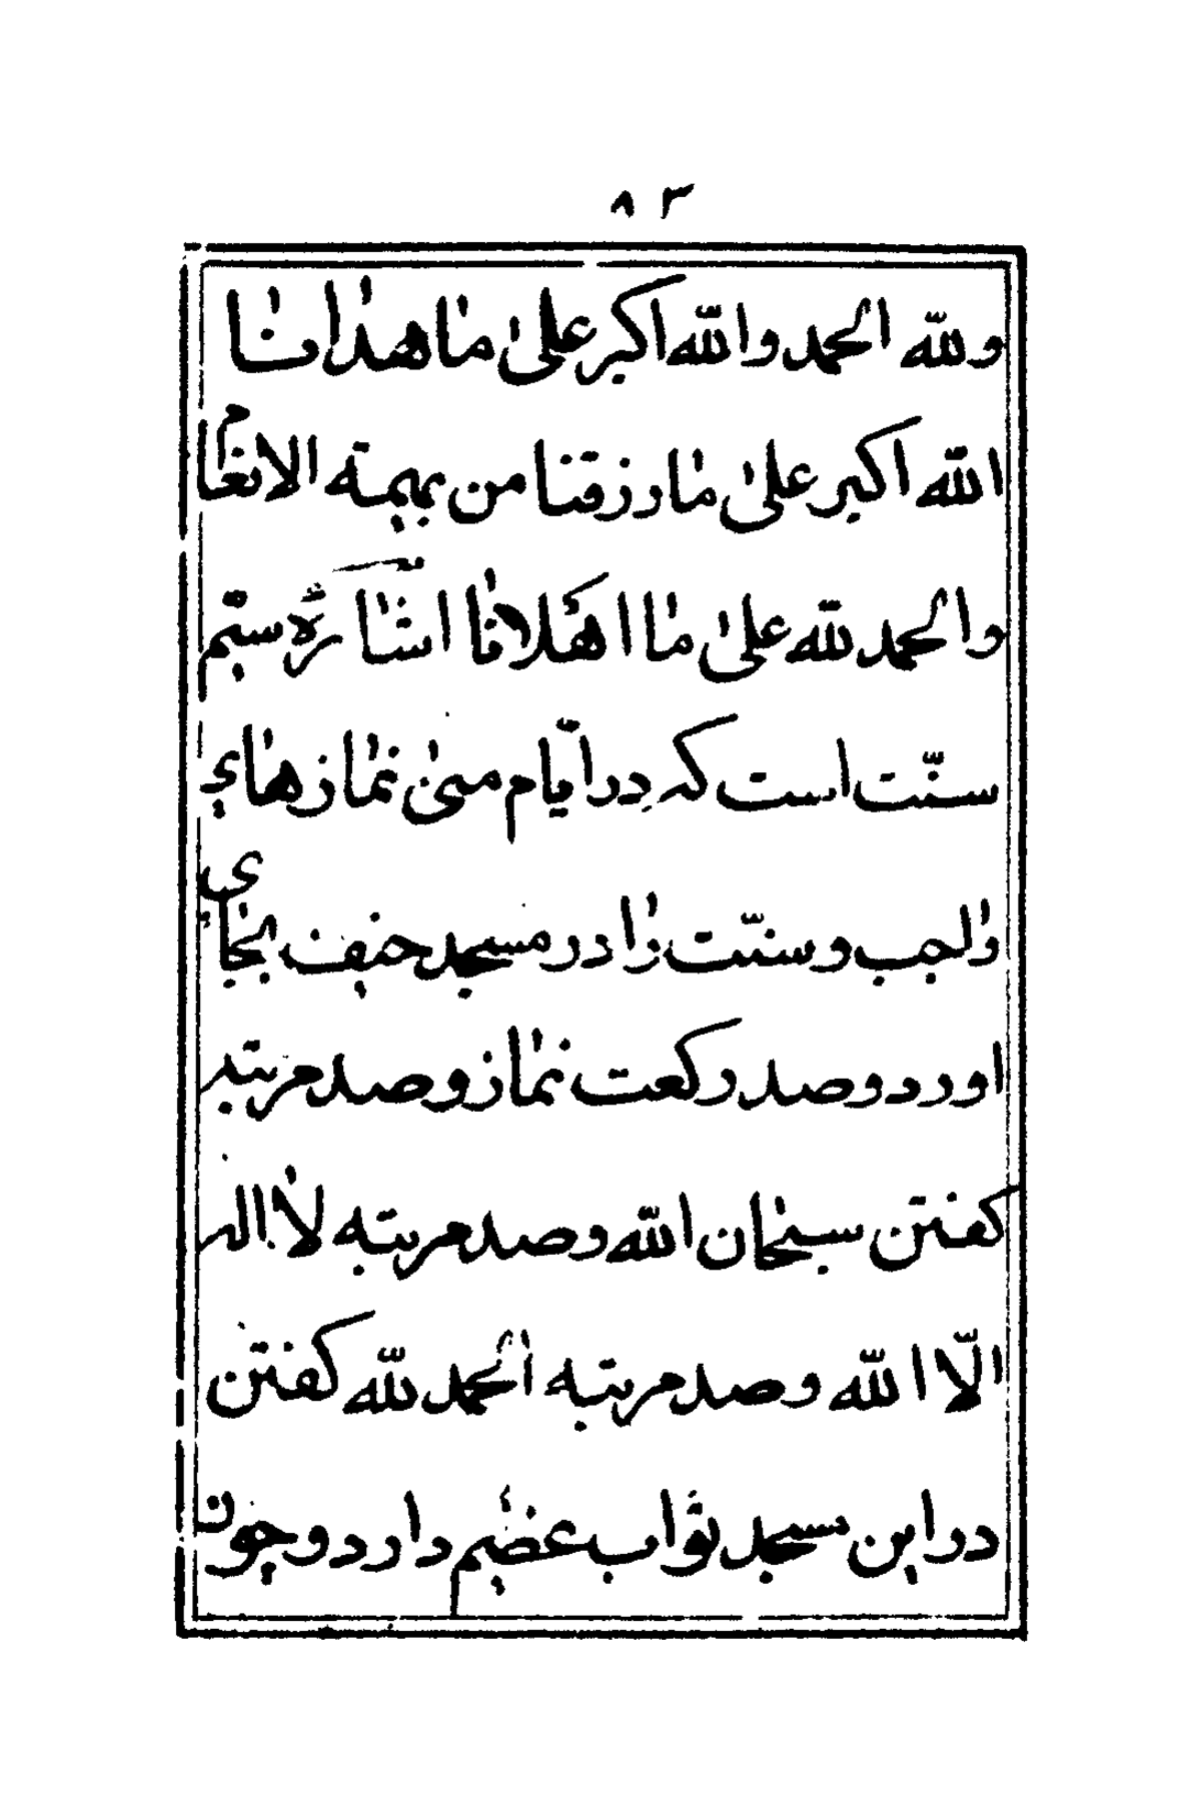 ۸۳
ولله الحمد والله اكبر على ما هدانا
الله اكبر على ما رزقنا من بهيمة الانعام
والحمد لله على ما اهلانا اشاره سيم
سنّت است كه در ايّام منى نمازهاي
واجب وسنّت را در مسجد خيف بجاي
اورد وصد ركعت نماز وصد مرتبه
كفتن سبحان الله وصد مرتبه لا اله
الّا الله وصد مرتبه الحمد لله كفتن
در اين مسجد ثواب عضيم دارد و چون